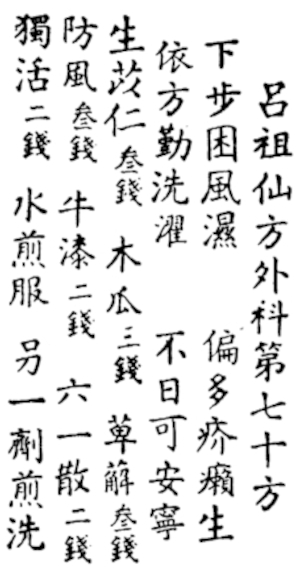 呂祖仙方外科第七十方
下步困風濕 偏多疥癩生
依方勤洗濯 不日可安寧
生苡仁叁錢 木瓜三錢 萆薢叁錢
防風叁錢 牛漆二錢 六一散二錢
獨活二錢 水煎服 另一劑煎洗